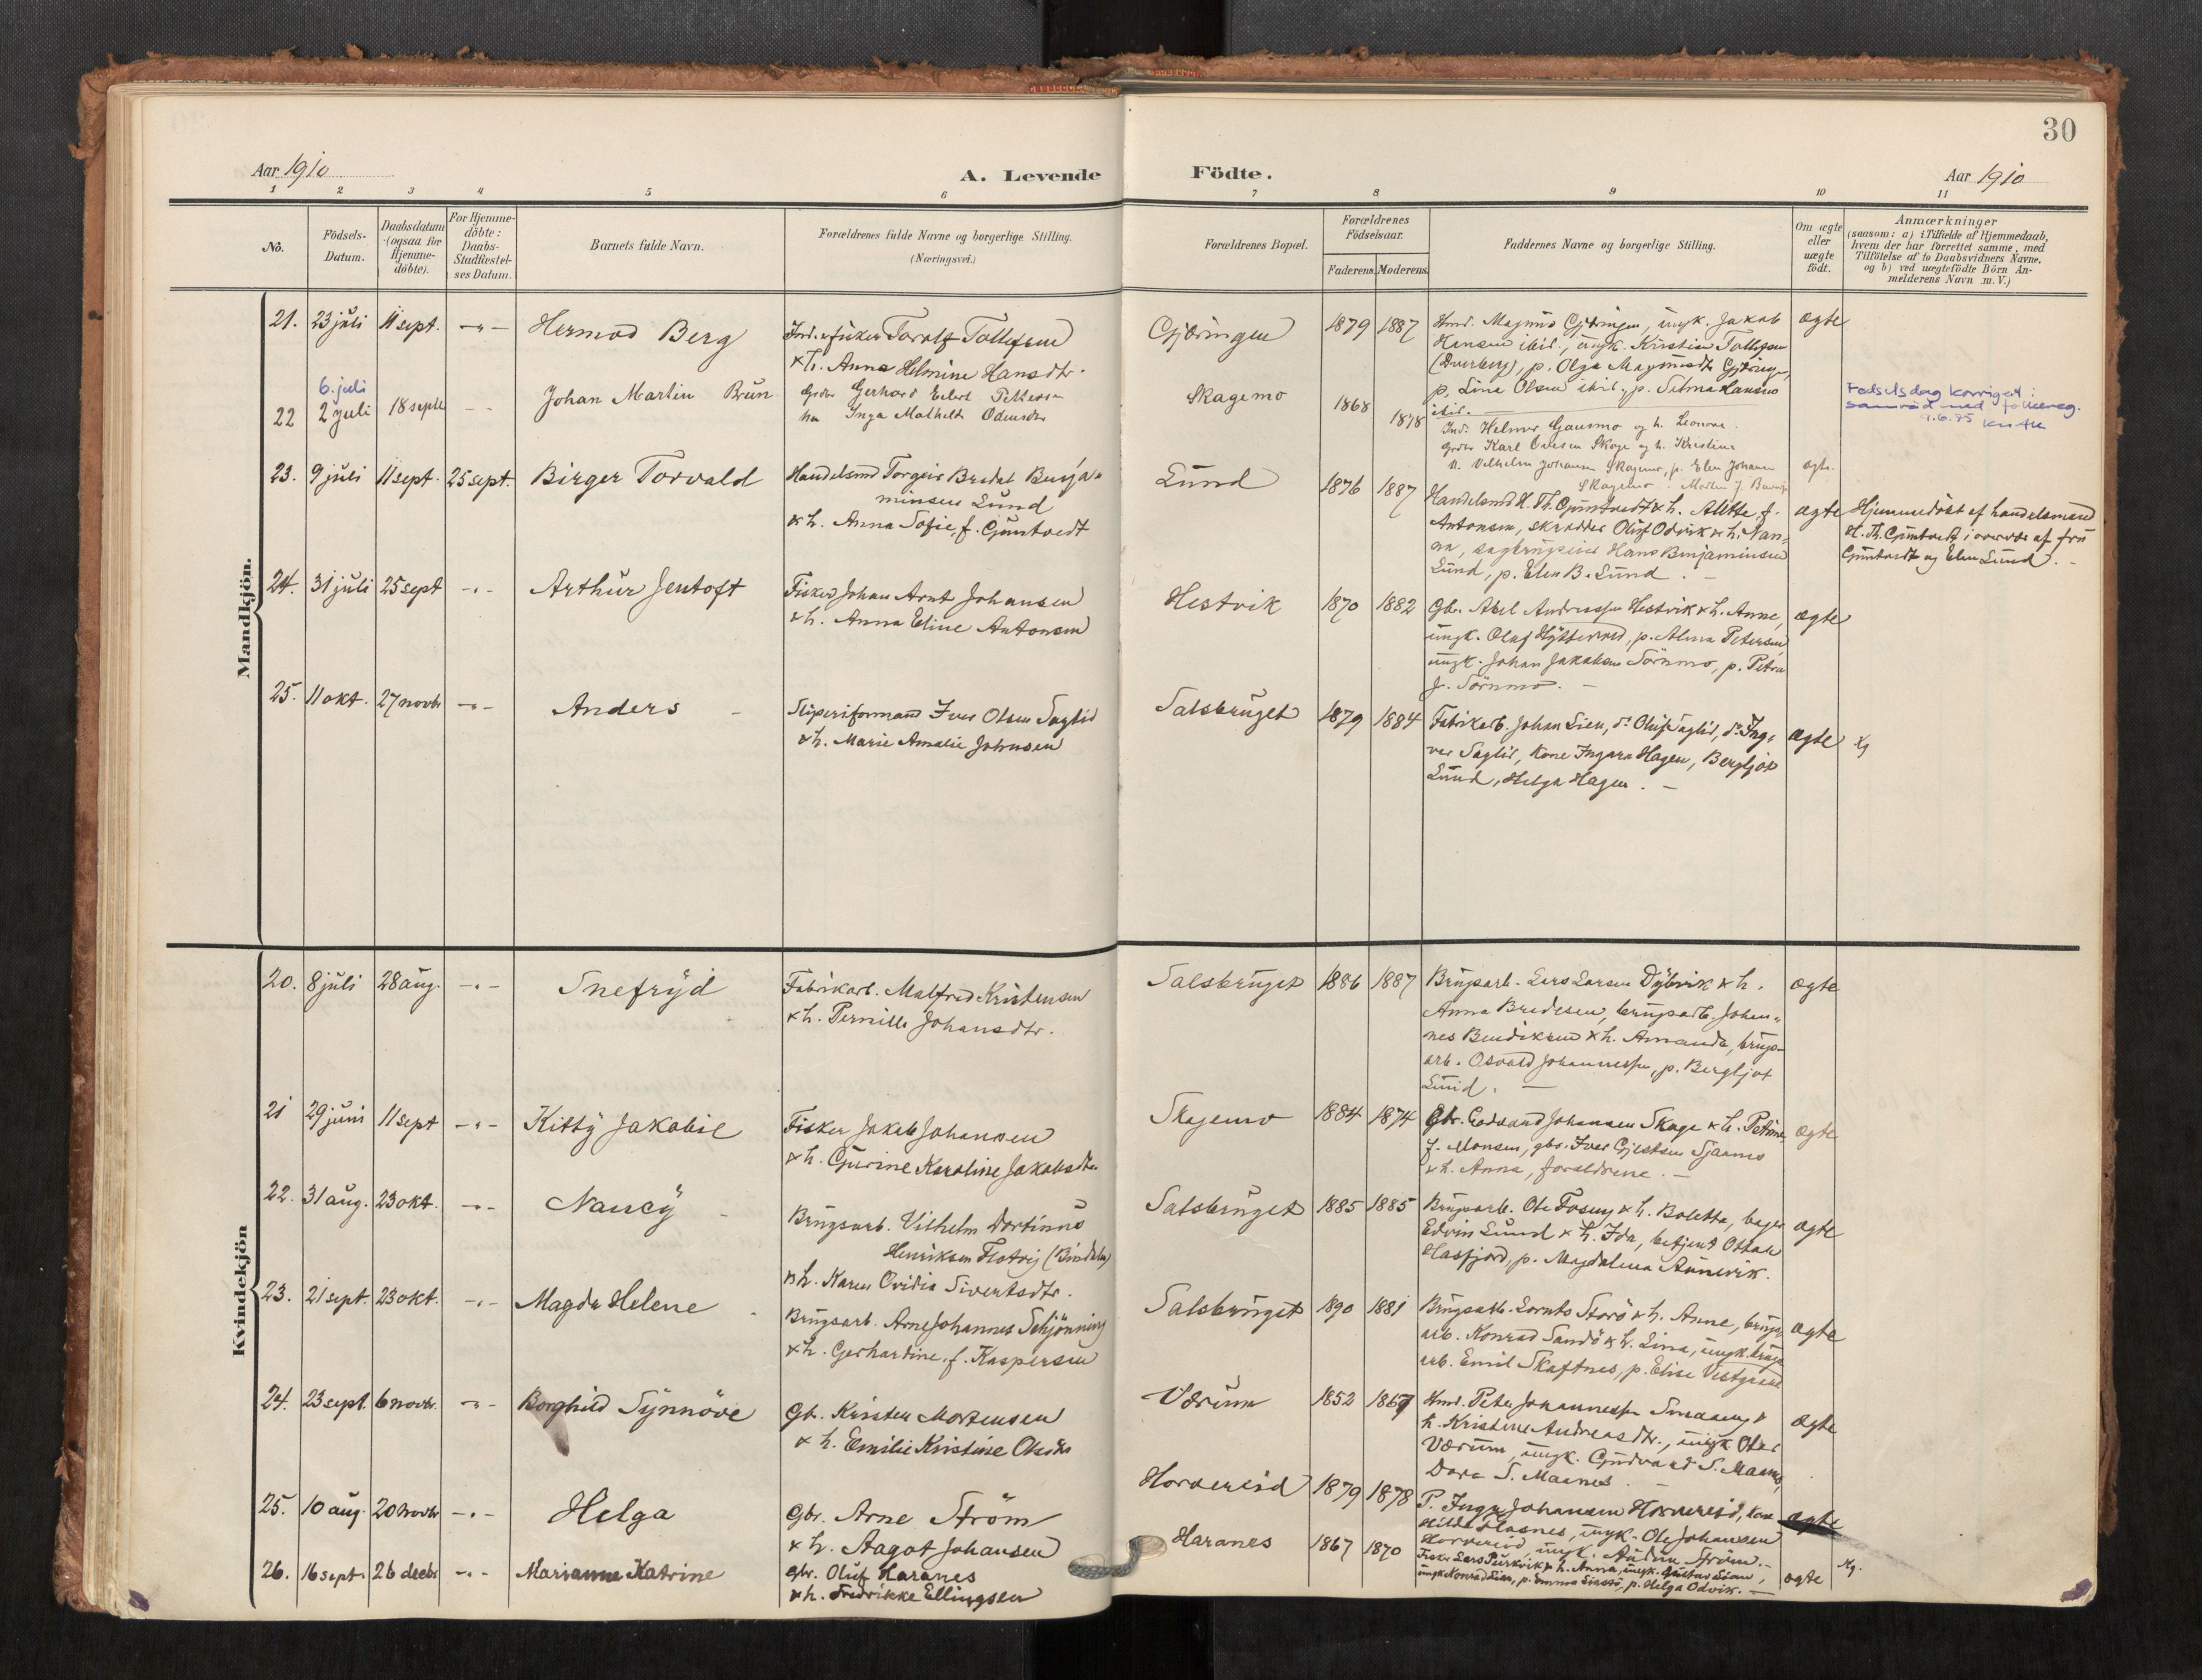 30
Aar 1910
A. Levende
Födte.
Aar 1910
1 2 3 4 5 6 7 8 9 10 11
No.
Födsels-
Datum.
Daabsdatum
(ogsaa for
Hjemme-
döbte).
For Hjemme-
döbte:
Daabs-
Stadfæstel-
ses Datum.
Barnets fulde Navn.
Forældrenes fulde Navne og borgerlige Stilling.
(Næringsvei.)
Forældrenes Bopæl.
Forældrenes
Födselsaar.
Faderens. Moderens.
Faddernes Navne og borgerlige Stilling.
Om ægte
eller
uægte
födt.
Anmærkninger
(saasom: a) i Tilfælde af Hjemmedaab,
hvem der har forrettet samme, med
Tilföielse af to Daabsvidners Navne,
og b) ved uægtefödte Börn An-
melderens Navn m. V.)
Mandkjön.
21. 23 juli 11 sept. -"- Hermod Berg
Ind. & fisker Torolf Tollefsen
& h. Anna Helmine Hansdtr.
Gjæringen 1879 1887
Hmd. Magnus Gjæringen, ungk. Jakob
Hansen ibid., ungk. Kristian Tollefsen
(Dverberg), p. Olga Magnusdtr Gjæringen,
p. Lina Olsen ibid., p. Selma Hansen
ibid.
ægte
6. juli
22 2 juli 18 septb - - Johan Martin Brun
Gerhard Eilert Pettersen
Inga Mathilde
Skagemo 1868 1878
Ind. Helmer Gausmo og h. Leonore.
Karl Skage og h. Kristine
Vilhelm Johansen Skagemo, p. Elen Johansen
Skagemo.
ægte.
Fødselsdag korrigert i
samråd med folkereg.
9.6.85
23. 9 juli 11 sept. 25 sept. Birger Torvald
Handelsmd Torgeir Bredal Benja-
minsen Lund
& h. Anna Sofie, f. Gjuntvedt
Lund 1876 1887
Handelsmd H. Th. Gjuntvedt & h. Alette f.
Antonsen, skrædder Oluf Odvik & h. Nan-
na, sagbrugseier Hans Benjaminsen
Lund, p. Elen B. Lund. -
ægte
Hjemmedöbt af handelsmand
H. Th. Gjuntvedt i overvær af fru
Gjuntvedt og Elen Lund. -
24. 31 juli 25 sept -"- Arthur Jentoft
Fisker Johan Arnt Johansen
& h. Anna Eline Antonsen
Hestvik 1870 1882
Gbr. Abel Andreassen Hestvik & h. Anne,
ungk. Olaf, p. Alma Petersen
ungk. Johan Jakobsen Sörnmo, p. Petra
J. Sörnmo. -
ægte
25. 11 okt. 27 novbr -"- Anders -
Sliperiformand Iver Olsen Saglid
& h. Marie Amalie Johnsen
Salsbruget 1879 1884
Fabrikarb. Johan Lien, do Oluf Saglid, do Ing-
var Saglid, Kone Ingara Hagen, Bergljot
Lund, Helga Hagen. -
ægte
Kvindekjön
20. 8 juli 28 aug. -"- Snefryd
Fabrikarb. Malfred Kristensen
& h. Pernille Johansdtr.
Salsbruget 1886 1887
Brugsarb. Lars Larsen Dybvik & h.
Anna Bredesen, brugsarb. Johan-
nes Bendiksen & h. Amanda, brugs-
arb. Osvald Johannessen, p. Bergljot
Lund. -
ægte
21 29 juni 11 sept -"- Kitty Jakobie
Fisker Jakob Johansen
& h. Gurine Karoline Jakobsdtr
Skagemo 1884 1874
Gbr. Johansen Skage & h. Petrine
f. Monsen, gbr. Iver
& h. Anna, forældrene. -
ægte
22. 31 aug. 23 okt. -"- Nancy -
Brugsarb. Vilhelm Dortinus
Henriksen (Bindalen)
& h. Karen Ovidia Sivertsdtr.
Salsbruget 1885 1885
Brugsarb. Ole Fosmo & h. Boletta, bager
Edvin Lund & h. Ida, betjent Ottar
Hasfjord, p. Magdalena Aunevik.
ægte
23. 21 sept. 23 okt. -"- Magda Helene -
Brugsarb. Arne Johannes Schjönning
& h. Gerhardine, f. Kaspersen
Salsbruget 1890 1881
Brugsarb. Lornts Storö & h. Anne, brugs-
arb. Konrad Sandö & h. Lina, ungk. brugs-
arb. Emil Skaftnes, p. Elise Vestgaard
ægte
24. 23 sept. 6 novbr. -"- Borghild Synnöve
Gbr. Kristen Mortensen
& h. Emilie Kristine Olsdtr
Værum 1852 1867
Hmd. Peter Johannessen &
h. Kristine Andreasdtr., ungk. Otar
Værum, ungk. Gudvard S. Maanes,
Dora S. Maanes. -
ægte
25. 10 aug. 20 novbr -"- Helga
Gbr. Arne Ström
& h. Aagot Johansen
Horvereid 1879 1878
P. Inga Johansen Horvereid, kone
Hilda Flasnes, ungk. Ole Johansen
Horvereid, ungk. Audun Ström. -
ægte
26. 16 sept. 26 decbr -"- Marianne Katrine
gbr. Oluf Haranes
& h. Fredrikke Ellingsen
Haranes 1867 1870
Fisker Lars Purkvik & h. Anna, ungk. Gustav
ungk Konrad Lian, p. Emma, p. Helga Odvik. -
ægte